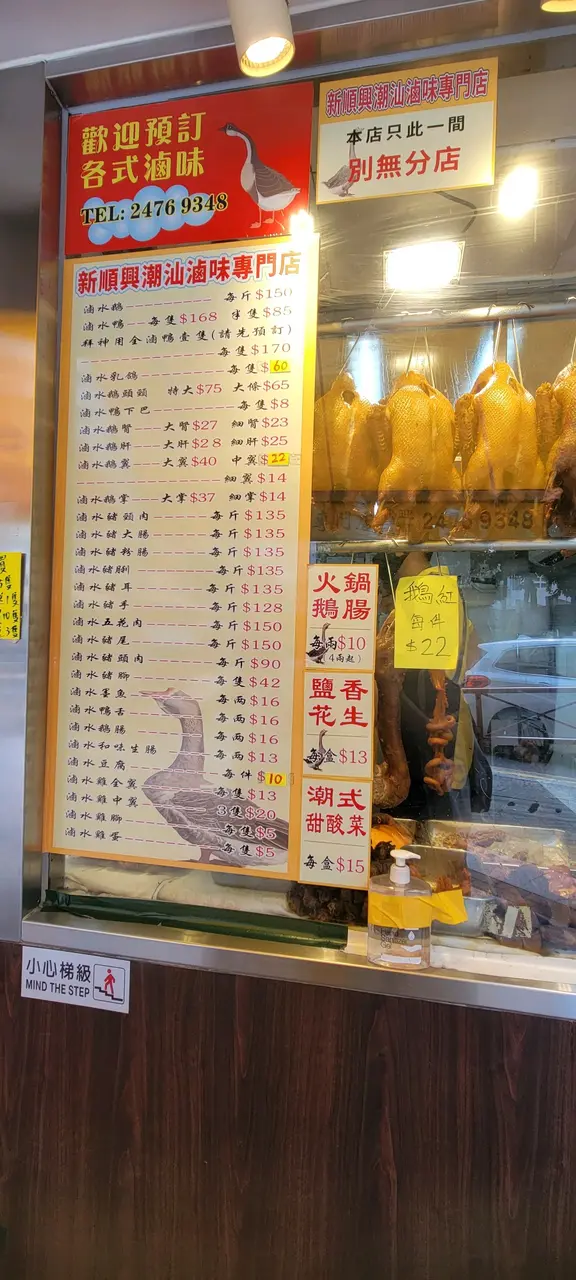 歡迎預訂
各式滷味
TEL: 2476 9348
新順興潮汕滷味專門店
本店只此一間
別無分店
新順興潮汕滷味專門店
滷水鵝 每斤$150
滷水鴨 每隻$168 半隻$85
拜神用全滷鴨壹隻(請先預訂)
每隻$170
滷水乳鴿 每隻$60
滷水鵝頭頸 特大$75 大條$65
滷水鴨下巴 每隻$8
滷水鵝腎 大腎$27 細腎$23
滷水鵝肝 大肝$28 細肝$25
滷水鵝翼 大翼$40 中翼$22
細翼$14
滷水鵝掌 大掌$37 細掌$14
滷水豬頸肉 每斤$135
滷水豬大腸 每斤$135
滷水豬粉腸 每斤$135
滷水豬脷 每斤$135
滷水豬耳 每斤$135
滷水豬手 每斤$128
滷水五花肉 每斤$150
滷水豬尾 每斤$150
滷水豬頭肉 每斤$90
滷水豬腳 每隻$42
滷水墨魚 每両$16
滷水鴨舌 每両$16
滷水鵝腸 每両$16
滷水和味生腸 每両$13
滷水豆腐 每件$10
滷水雞全翼 每隻$13
滷水雞中翼 3隻$20
滷水雞腳 每隻$5
滷水雞蛋 每隻$5
火鍋
鵝腸
每両$10
(4両起)
鹽香
花生
每盒$13
潮式
甜酸菜
每盒$15
鵝紅
每件
$22
2476 9348
小心梯級
MIND THE STEP